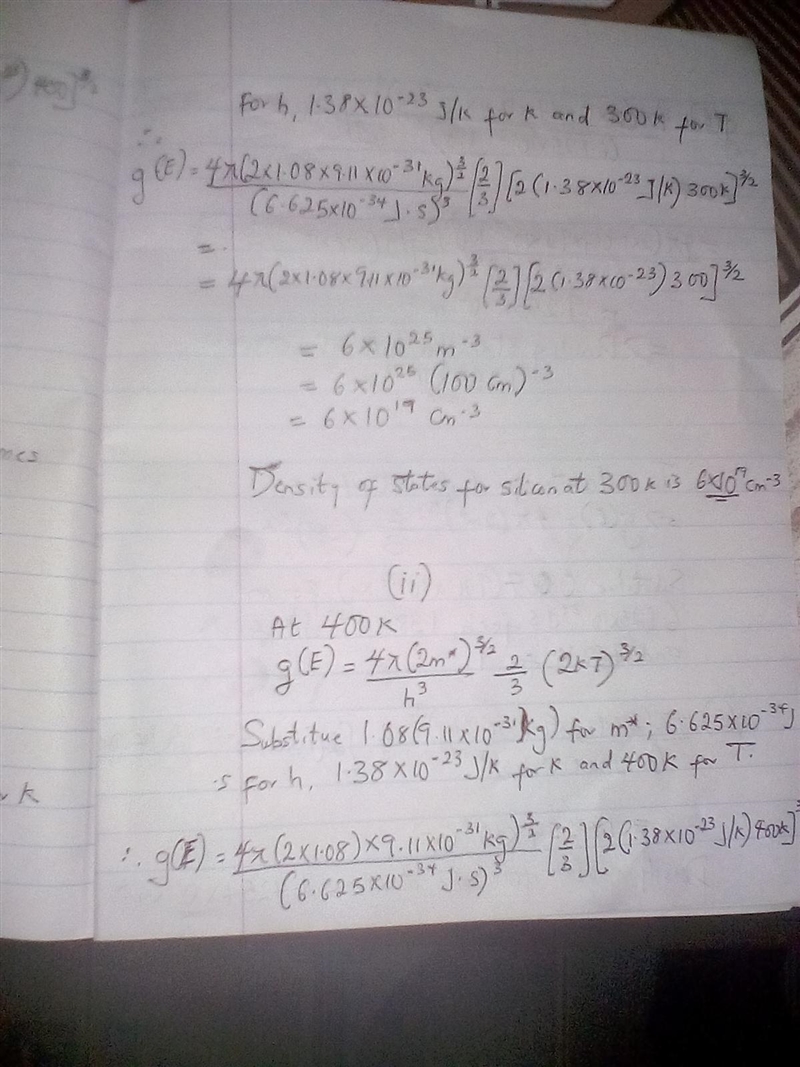 400]^3/2
For h, 1.38×10^-23 J/K for K and 300K for T
∴ g(E) = 4π(2×1.08×9.11×10^-31 kg)^3/2 / (6.625×10^-34 J.s)^3 [2/3] [2(1.38×10^-23 J/K) 300K]^3/2
= .
= 4π(2×1.08×9.11×10^-31 kg)^3/2 [2/3] [2(1.38×10^-23) 300]^3/2
= 6×10^25 m^-3
= 6×10^25 (100 cm)^-3
= 6×10^19 cm^-3
Density of states for silicon at 300K is 6×10^19 cm^-3
(ii)
At 400K
g(E) = 4π(2m*)^3/2 / h^3 2/3 (2KT)^3/2
Substitue 1.08(9.11×10^-31 kg) for m*; 6.625×10^-34 J
.s for h, 1.38×10^-23 J/K for K and 400K for T.
K
∴ g(E) = 4π(2×1.08)×9.11×10^-31 kg)^3/2 / (6.625×10^-34 J.s)^3 [2/3] [2(1.38×10^-23 J/K) 400K]^3